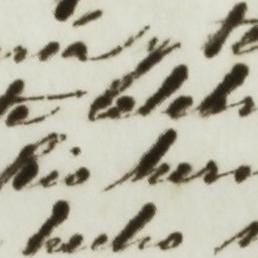 ría y te
te celebr
Rio herm
hecho